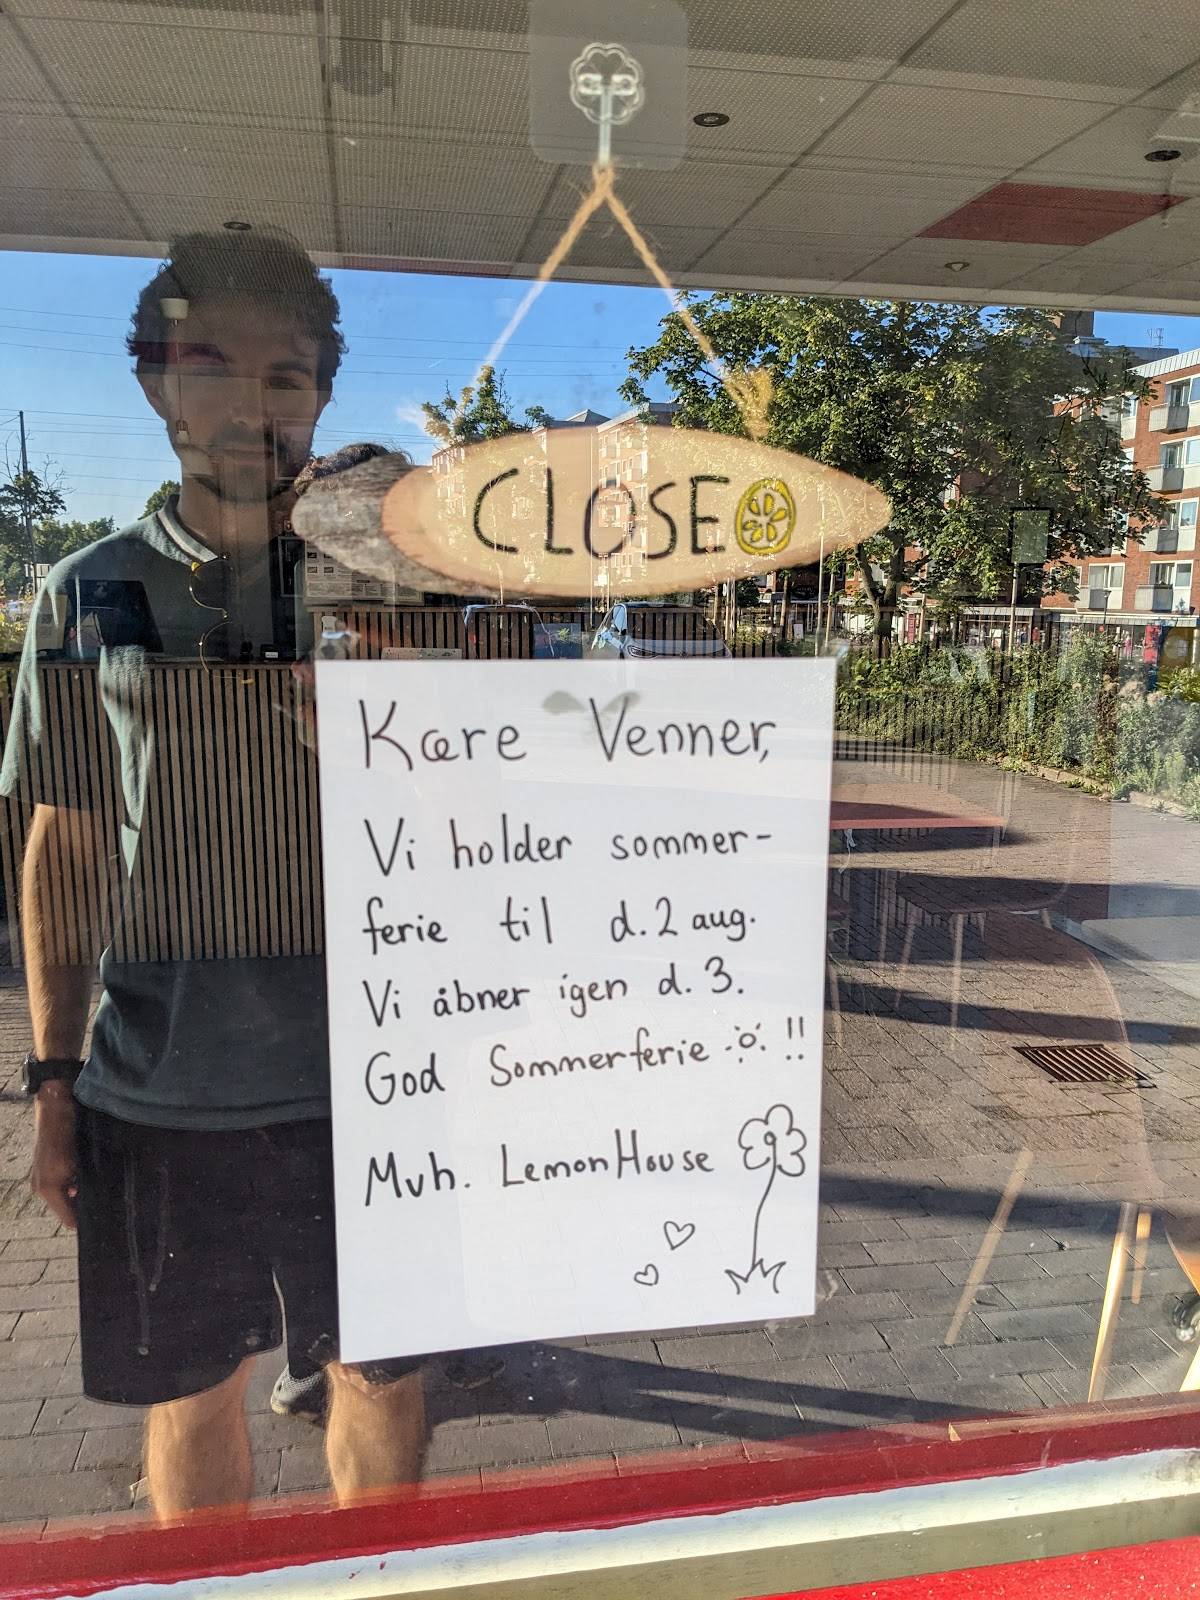 CLOSED
Kære Venner,
Vi holder sommer-
ferie til d. 2 aug.
Vi åbner igen d. 3.
God Sommerferie !!
Mvh. LemonHouse